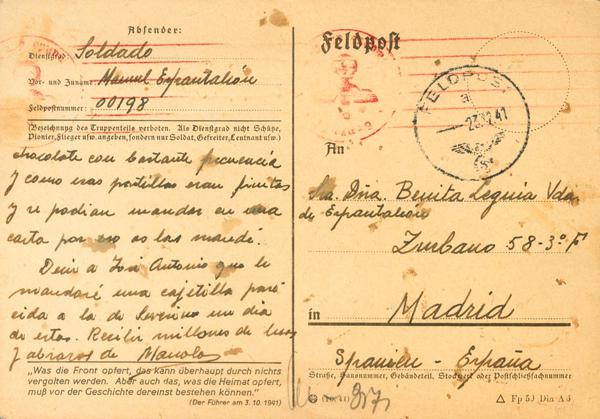 Absender:
Dienstgrad: Soldado
Vor- und Zuname: Manuel Espantaleón
Feldpostnummer: 00198
(Bezeichnung des Truppenteils verboten. Als Dienstgrad nicht Schütze,
Pionier, Flieger usw. angeben, sondern nur Soldat, Gefreiter, Leutnant usw.)
chocolate con bastante frecuencia
y como esas pastillas eran finitas
y se podian mandar en una
carta por eso os las mandé.
Decir a José Antonio que le
mandaré una cajetilla pare
cida a la de Severino un dia
de estos. Recibir millones de besos
y abrazos de Manolo
"Was die Front opfert, das kann überhaupt durch nichts
vergolten werden. Aber auch das, was die Heimat opfert,
muß vor der Geschichte dereinst bestehen können."
(Der Führer am 3. 10. 1941)
Feldpost
FELDPOST
a
23.12.41
An
Sra. Dña. Benita Leguia Vda
de Espantaleón
Zurbano 58-3º F
in Madrid
Spanien - España
Straße, Hausnummer, Gebäudeteil, Stockwerk oder Postschließfachnummer
Fp 50 Din A 6